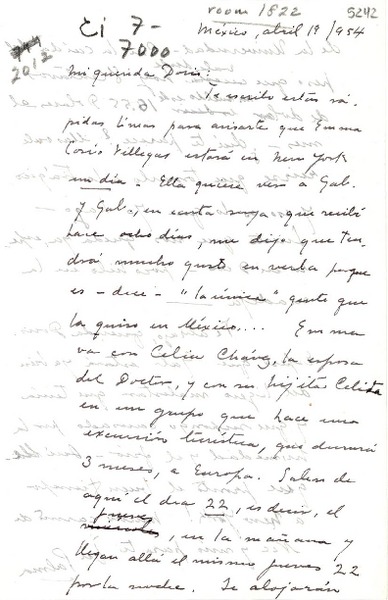 room 1822
5242
Ei 7-
7000
México, abril 19/954
2012
Mi querida Doris:
Te escribo estas rá-
pidas líneas para avisarte que Emma
Cosío Villegas estará en New York
un día. Ella quiere ver a Gab.
y Gab., en carta suya que recibí
hace ocho días, me dijo que ten-
drá mucho gusto en verla porque
es - dice - "la única" gente que
la quiso en México.... Emma
va con Celia Chávez, la esposa
del Doctor, y con su hijita Celita
en un grupo que hace una
excursión turística, que durará
3 meses, a Europa. Salen de
aquí el día 22, es decir, el
jueves
miércoles, en la mañana y
llegan allá el mismo jueves 22
por la noche. Se alojarán
Palma